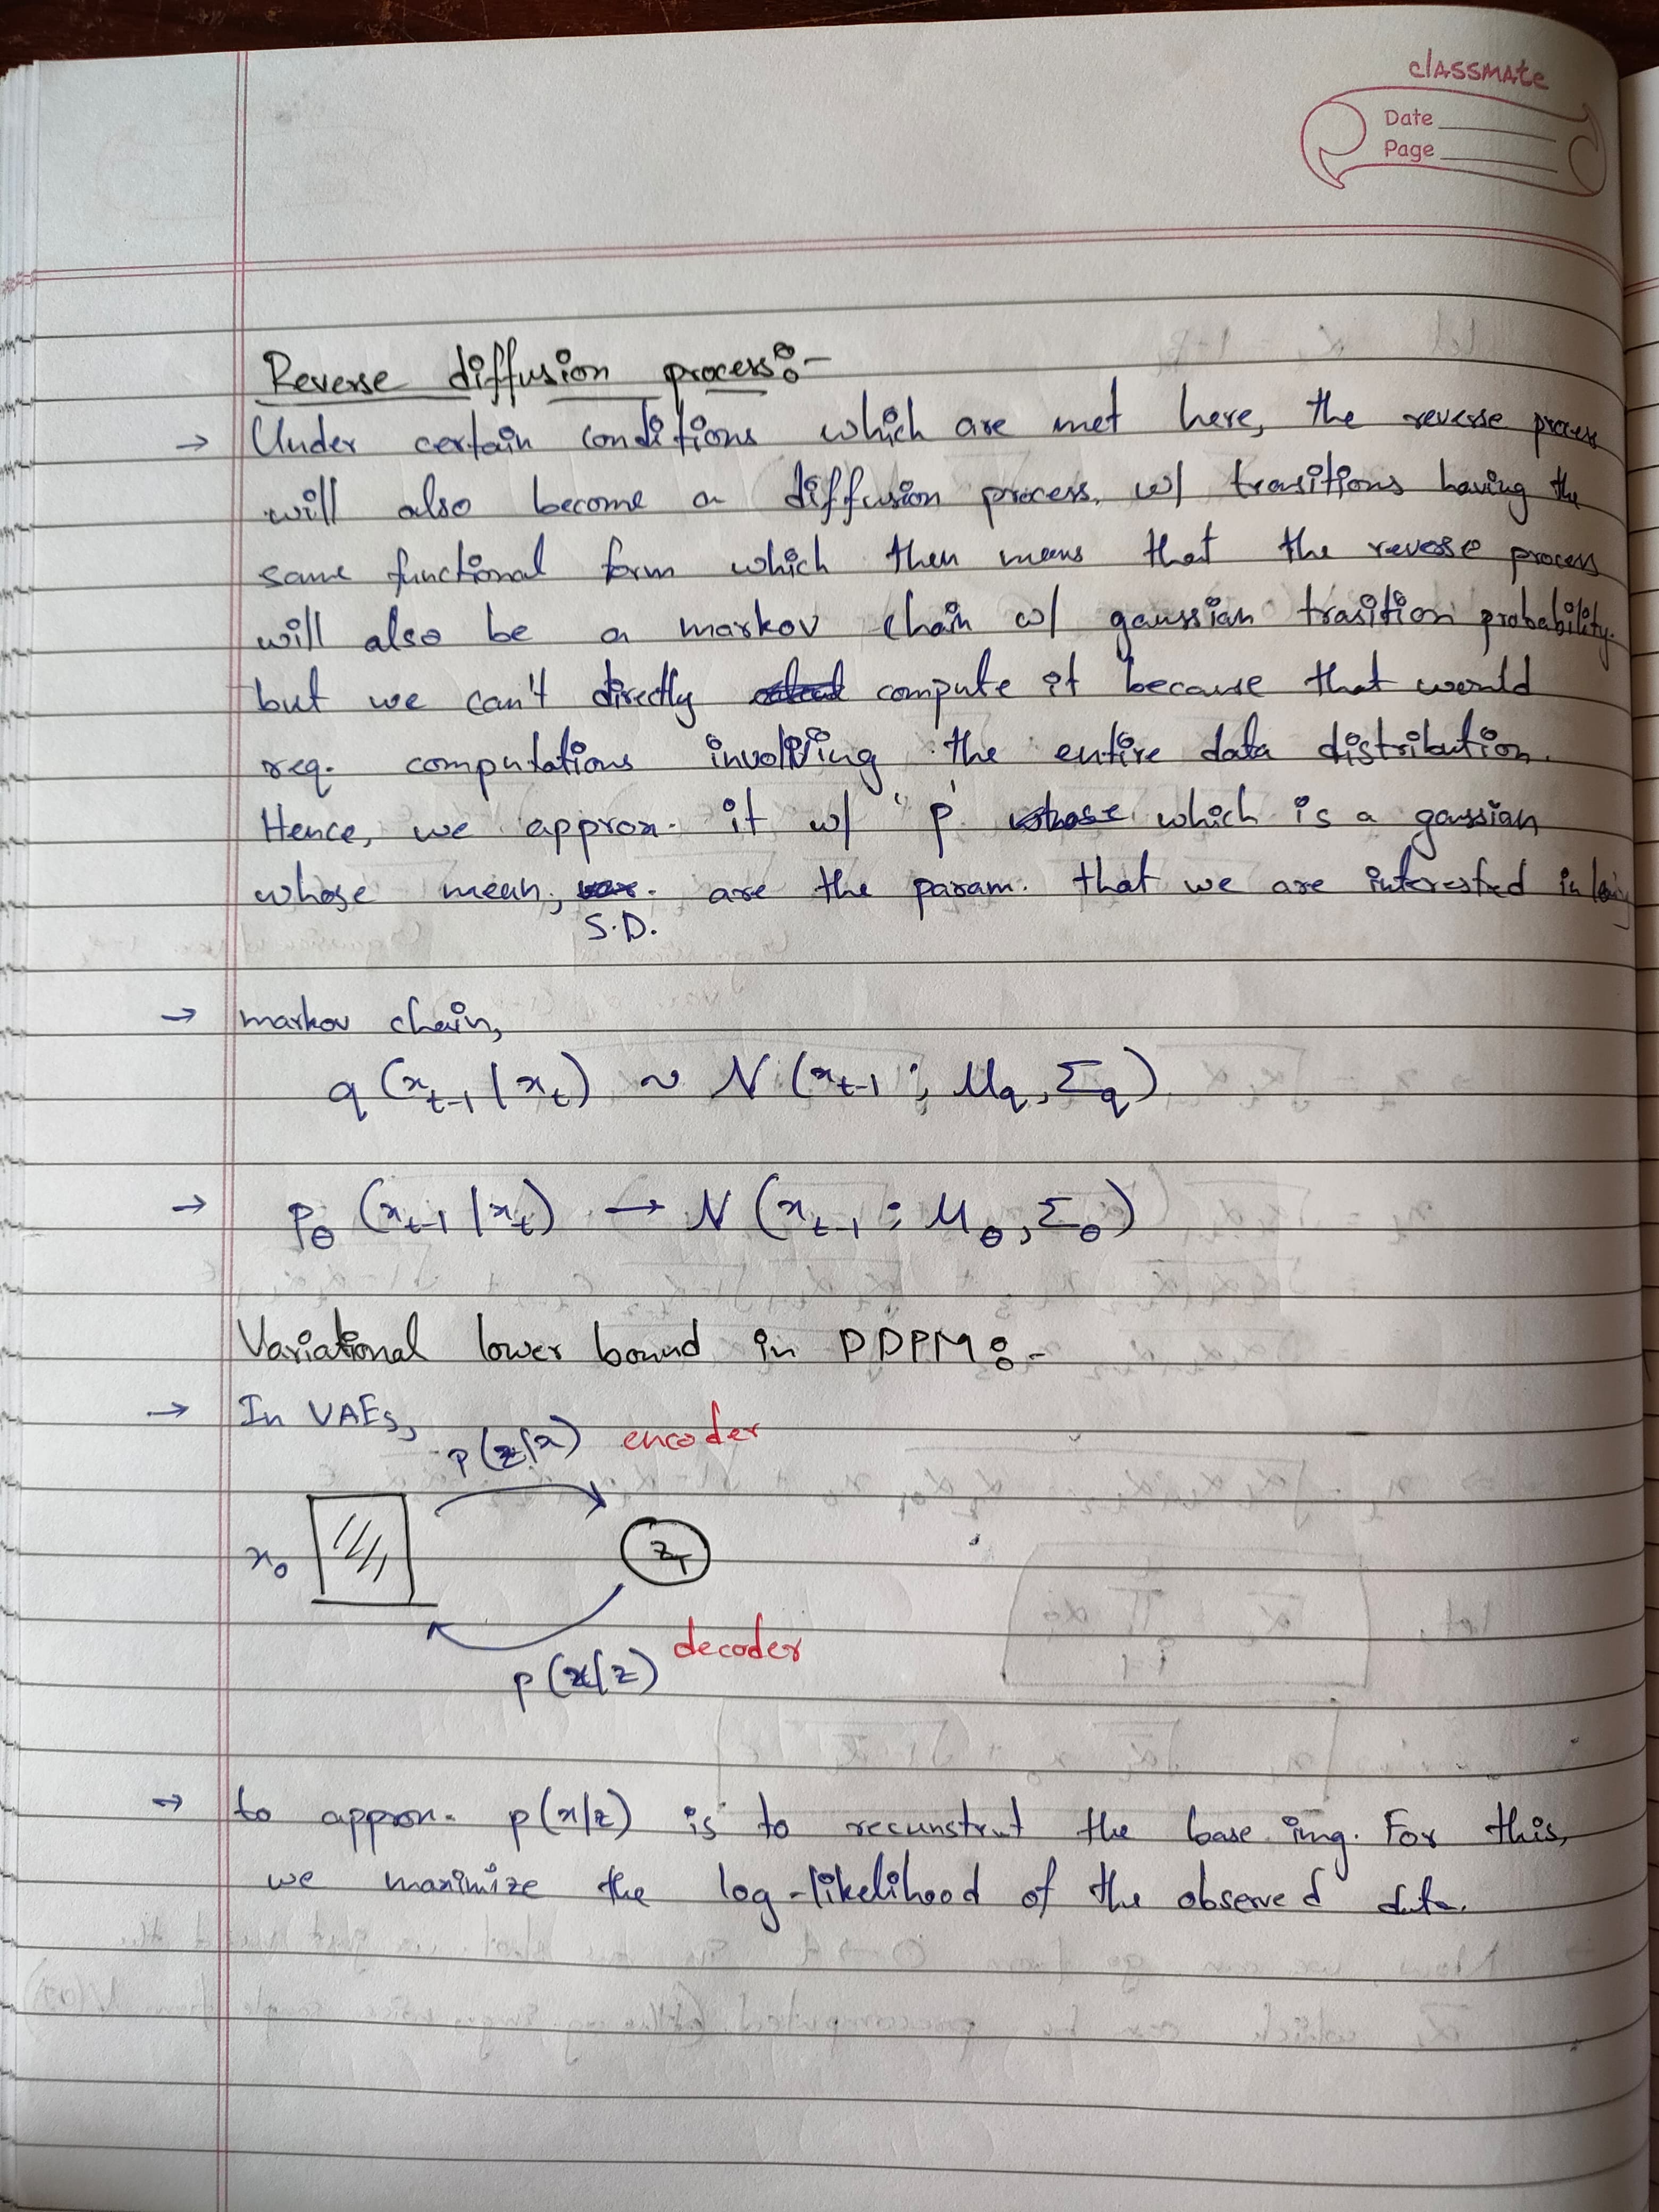 classmate
Date
Page
Reverse diffusion process:-
→ Under certain conditions which are met here, the reverse process
will also become a diffusion process, w/ trasitions having the
same functional form which then means that the reverse process
will also be a markov chain w/ gaussian trasition probability.
but we can't directly compute it because that would
req. computations involving the entire data distribution.
Hence, we approx. it w/ 'p' whose which is a gaussian
whose mean, var. are the param. that we are interested in
S.D.
→ markov chain,
q(x_{t-1}|x_t) ~ N(x_{t-1}; μ_q, Σ_q)
→ p_θ(x_{t-1}|x_t) → N(x_{t-1}; μ_θ, Σ_θ)
Variational lower bound in DDPM:-
→ In VAEs,
p(z|x) encoder
x_0 z_T
decoder
p(x|z)
→ to approx. p(x|z) is to recunstrut the base img. For this,
we maximize the log-likelihood of the observed data.